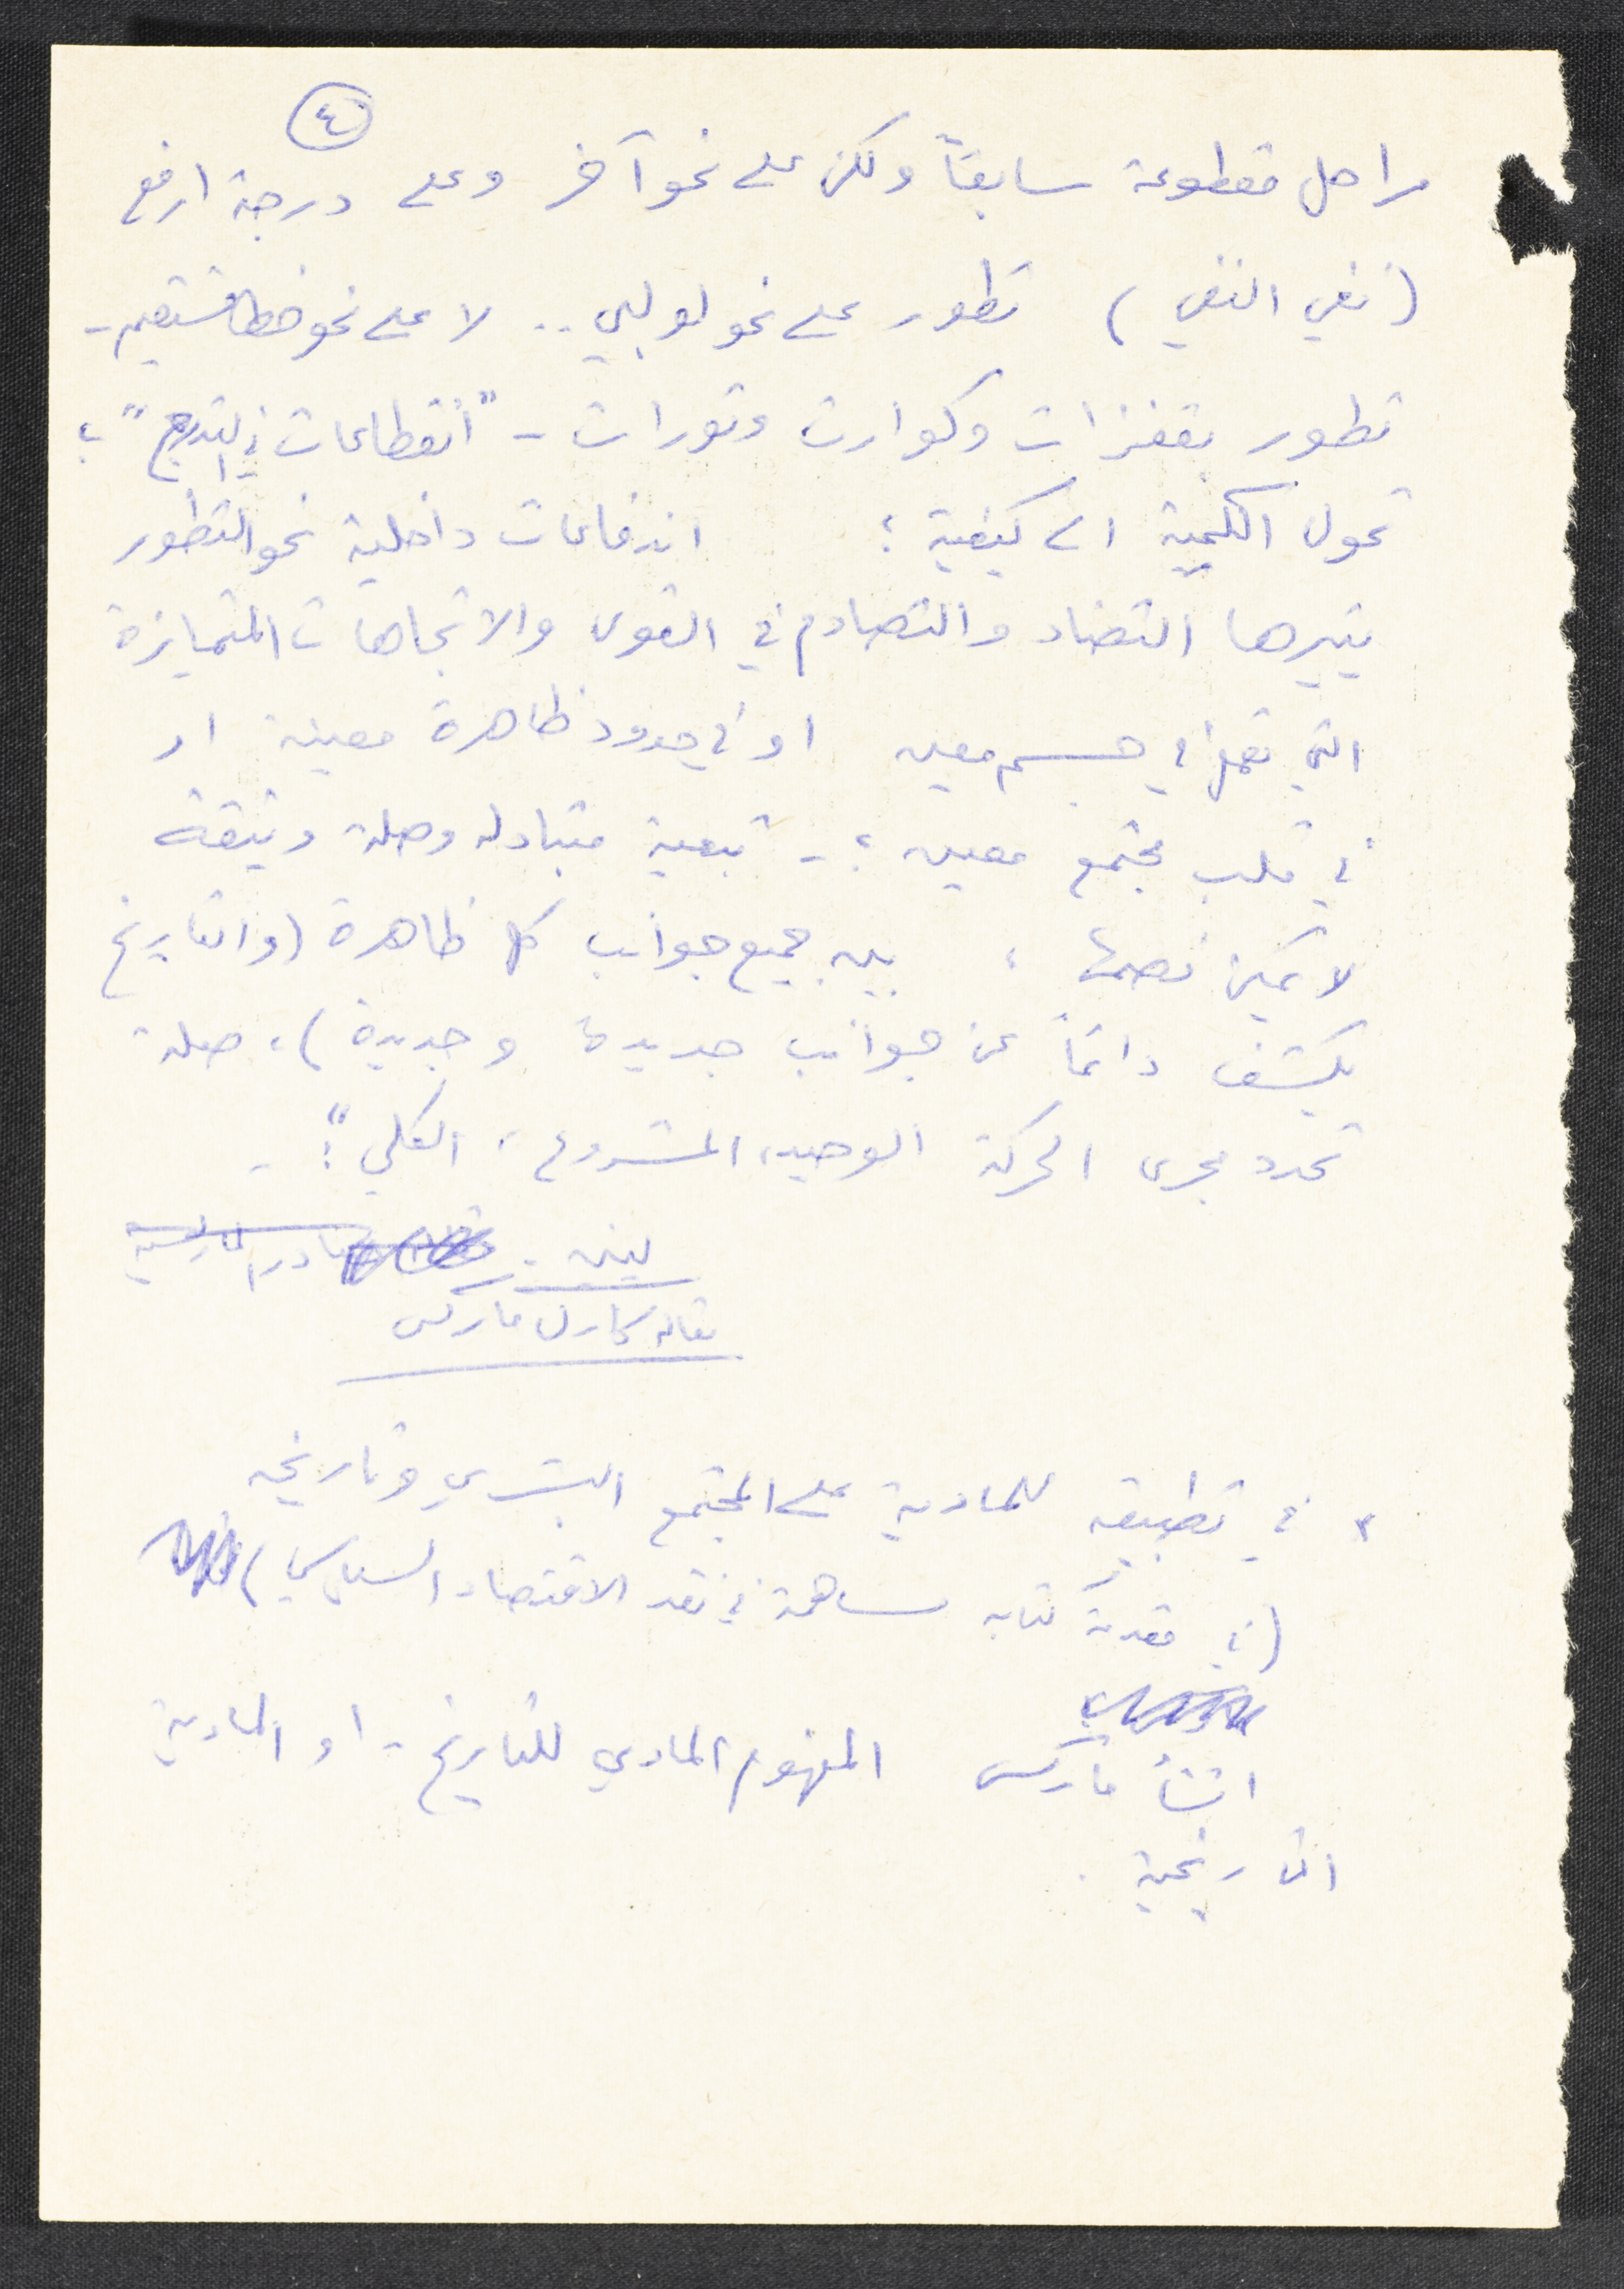 ٤
مراحل مقطوعة سابقاً ولكن على نحو آخر وعلى درجة ارفع
(نفي النفي) تطور على نحو لولبي .. لا على نحو خط مستقيم -
تطور بقفزات وكوارث وثورات - "انقطاعات في التدرج"؛
تحول الكمية الى كيفية؛ اندفاعات داخلية نحو التطور
يثيرها التضاد والتصادم في القوى والاتجاهات المتمايزة
التي تعمل في جسم معين او في حدود ظاهرة معينة او
في قلب مجتمع معين؛ - تبعية متبادلة وصلة وثيقة
لا يمكن فصمها، بين جميع جوانب كل ظاهرة (والتاريخ
يكشف دائماً عن جوانب جديدة وجديدة)، صلة
تحدد مجرى الحركة الوحيد، المشروع، الكلي"؛ -
لينين -
مقالة كارل ماركس
٢ في تطبيقه للمادية على المجتمع البشري وتاريخه
(في مقدمة كتابه مساهمة في نقد الاقتصاد السياسي)
انشأ ماركس المفهوم المادي للتاريخ - او المادية
التاريخية .